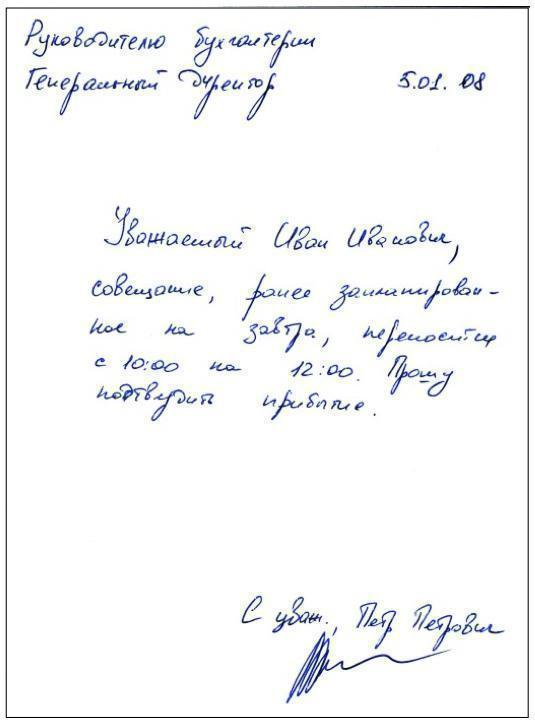 Руководителю бухгалтерии
Генеральный директор 5.01.08
Уважаемый Иван Иванович,
совещание, ранее запланирован-
ное на завтра, переносится
с 10:00 на 12:00. Прошу
подтвердить прибытие.
С уваж., Петр Петрович